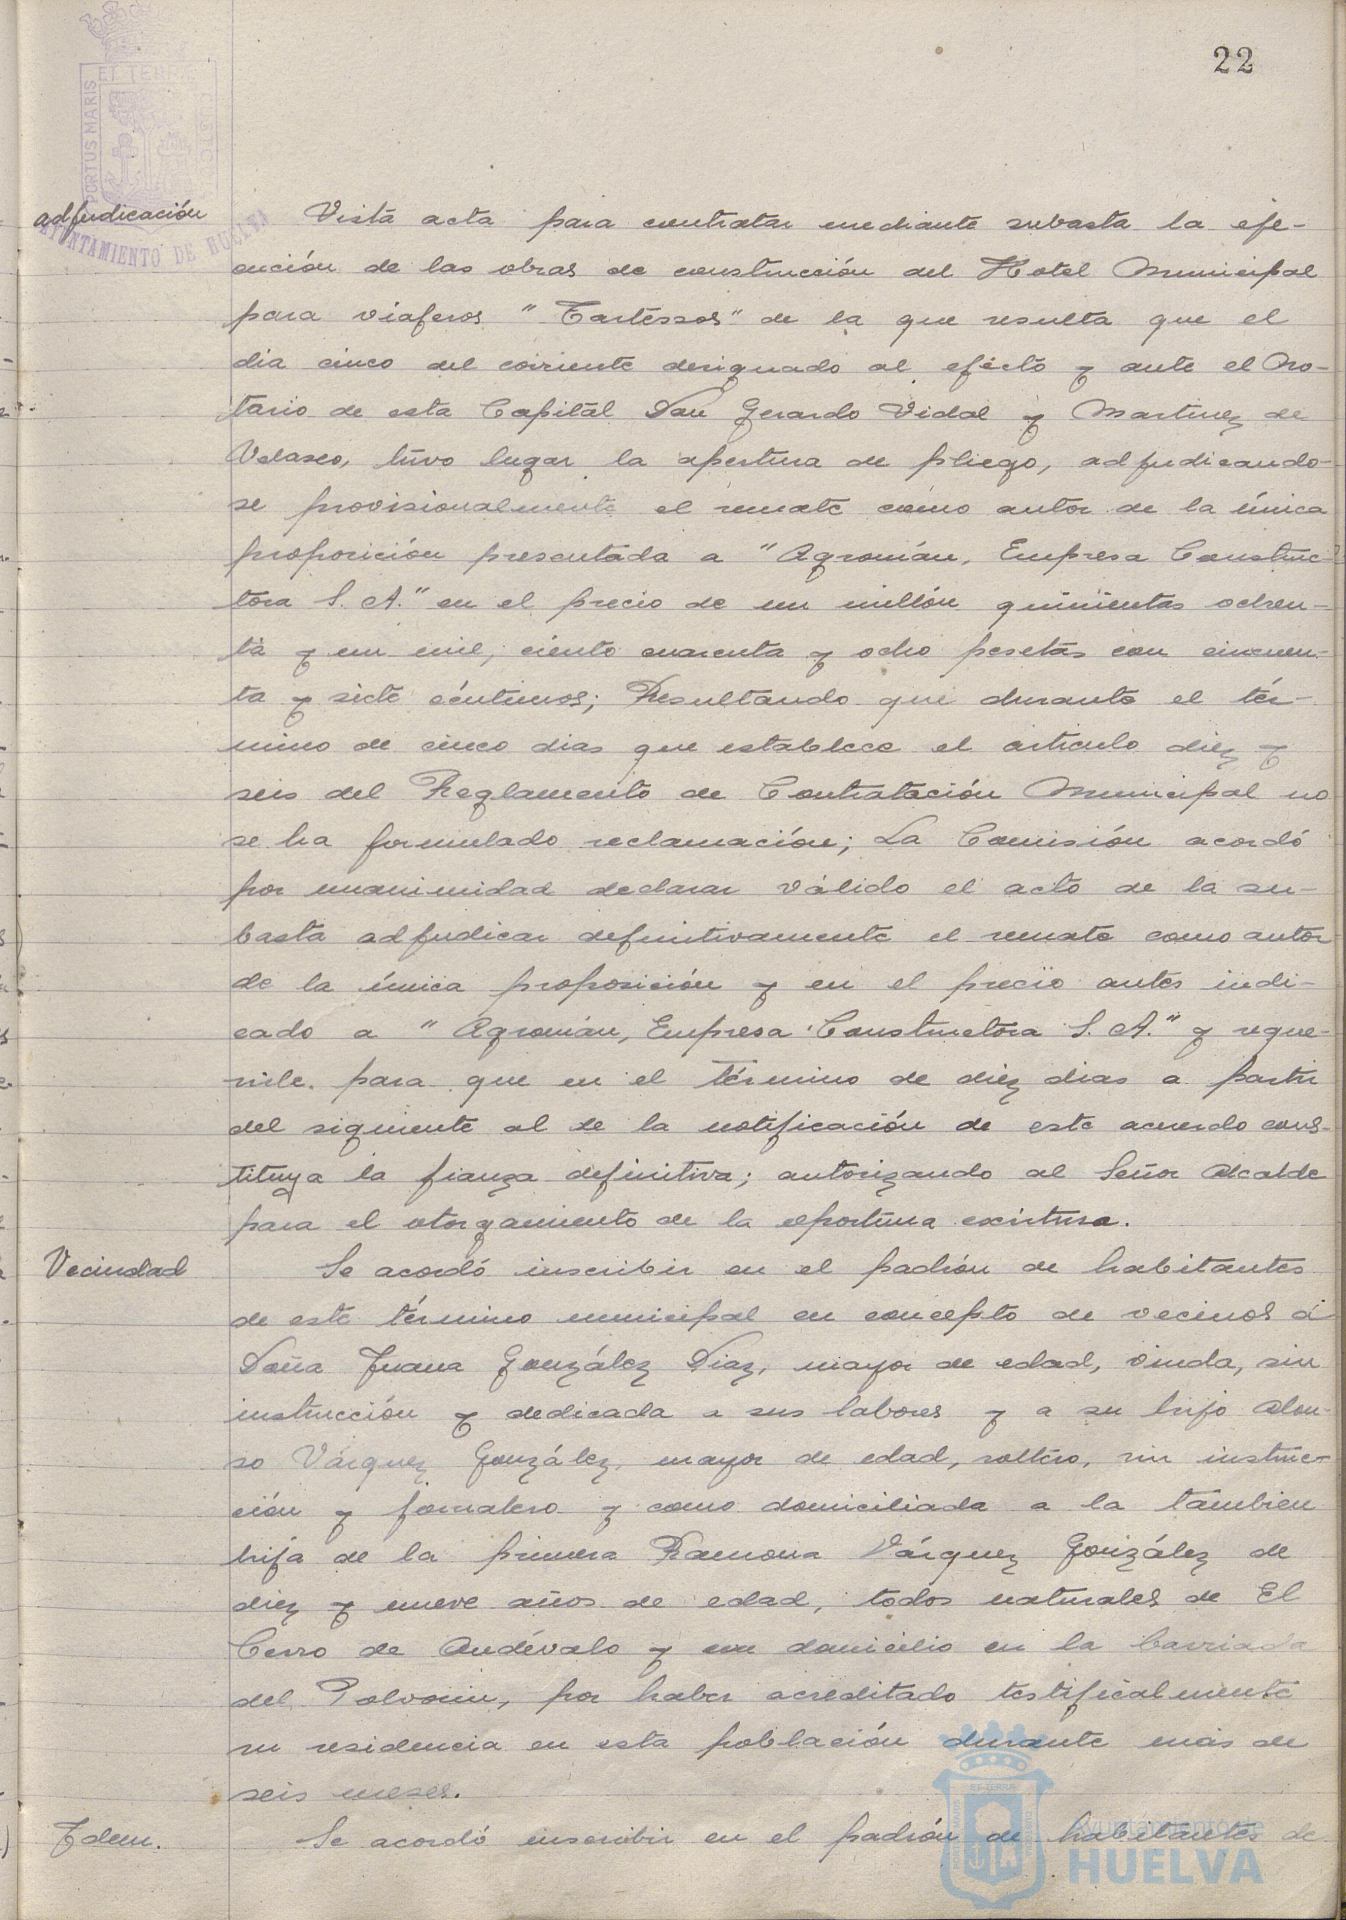 22
PORTUS MARIS
ET TERRÆ
CUSTODIA
AYUNTAMIENTO DE HUELVA
adjudicación
Vista acta para contratar mediante subasta la eje-
cución de las obras de construcción del Hotel Municipal
para viajeros "Tartéssos" de la que resulta que el
dia cinco del corriente designado al efecto y ante el No-
tario de esta Capital Don Gerardo Vidal y Martinez de
Velasco, tuvo lugar la apertura de pliego, adjudicando-
se provisionalmente el remate como autor de la única
proposición presentada a "Agromán, Empresa Construc-
tora S. A." en el precio de un millón quinientas ochen-
ta y un mil, ciento cuarenta y ocho pesetas con cincuen-
ta y siete céntimos; Resultando que durante el tér-
mino de cinco dias que establece el articulo diez y
seis del Reglamento de Contratación Municipal no
se ha formulado reclamación; La Comisión acordó
por unanimidad declarar válido el acto de la su-
basta adjudicar definitivamente el remate como autor
de la única proposición y en el precio antes indi-
cado a "Agromán, Empresa Constructora S. A." y reque-
rirle. para que en el término de diez dias a partir
del siguiente al de la notificación de este acuerdo cons-
tituya la fianza definitiva; autorizando al Señor Alcalde
para el otorgamiento de la oportuna escritura.
Vecindad
Se acordó inscribir en el padrón de habitantes
de este término municipal en concepto de vecinos á
Doña Juana González Diaz, mayor de edad, viuda, sin
instrucción y dedicada a sus labores y a su hijo Alon-
so Vázquez González, mayor de edad, soltero, sin instruc-
ción y jornalero y como domiciliada a la tambien
hija de la primera Ramona Vázquez González de
diez y nueve años de edad, todos naturales de El
Cerro de Andévalo y con domicilio en la barriada
del Polvorin, por haber acreditado testificalmente
su residencia en esta población durante más de
seis meses.
Idem.
Se acordó inscribir en el padrón de habitantes de
Ayuntamiento de
HUELVA